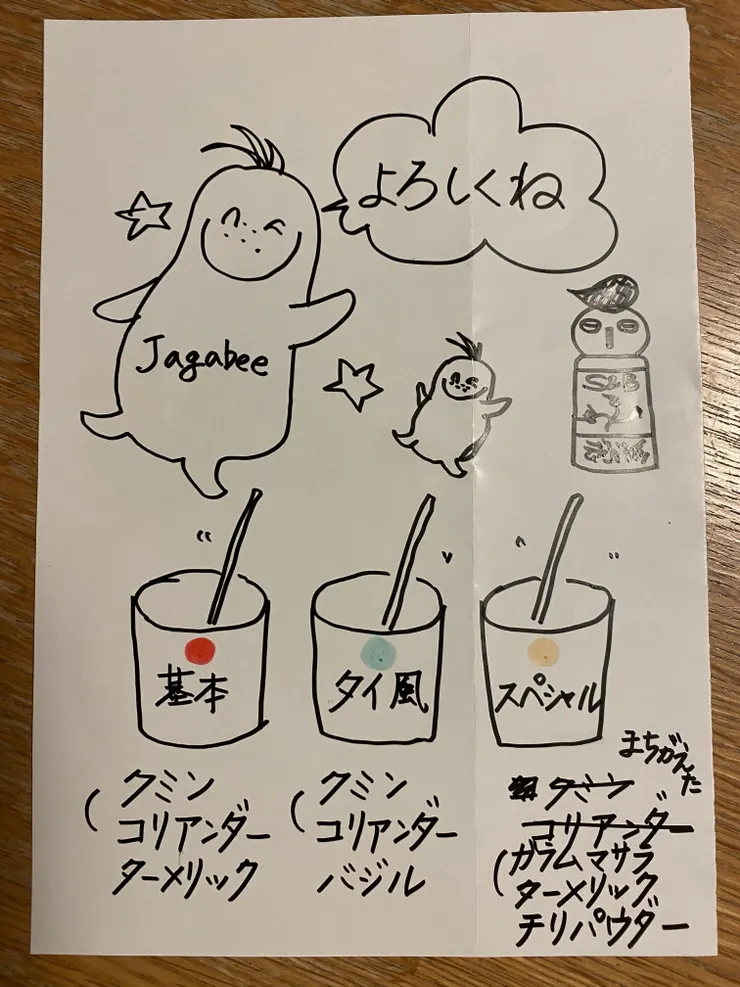 よろしくね
Jagabee
S&B
基本
タイ風
スペシャル
まちがえた
クミン
コリアンダー
ターメリック
クミン
コリアンダー
バジル
クミン
コリアンダー
ガラムマサラ
ターメリック
チリパウダー